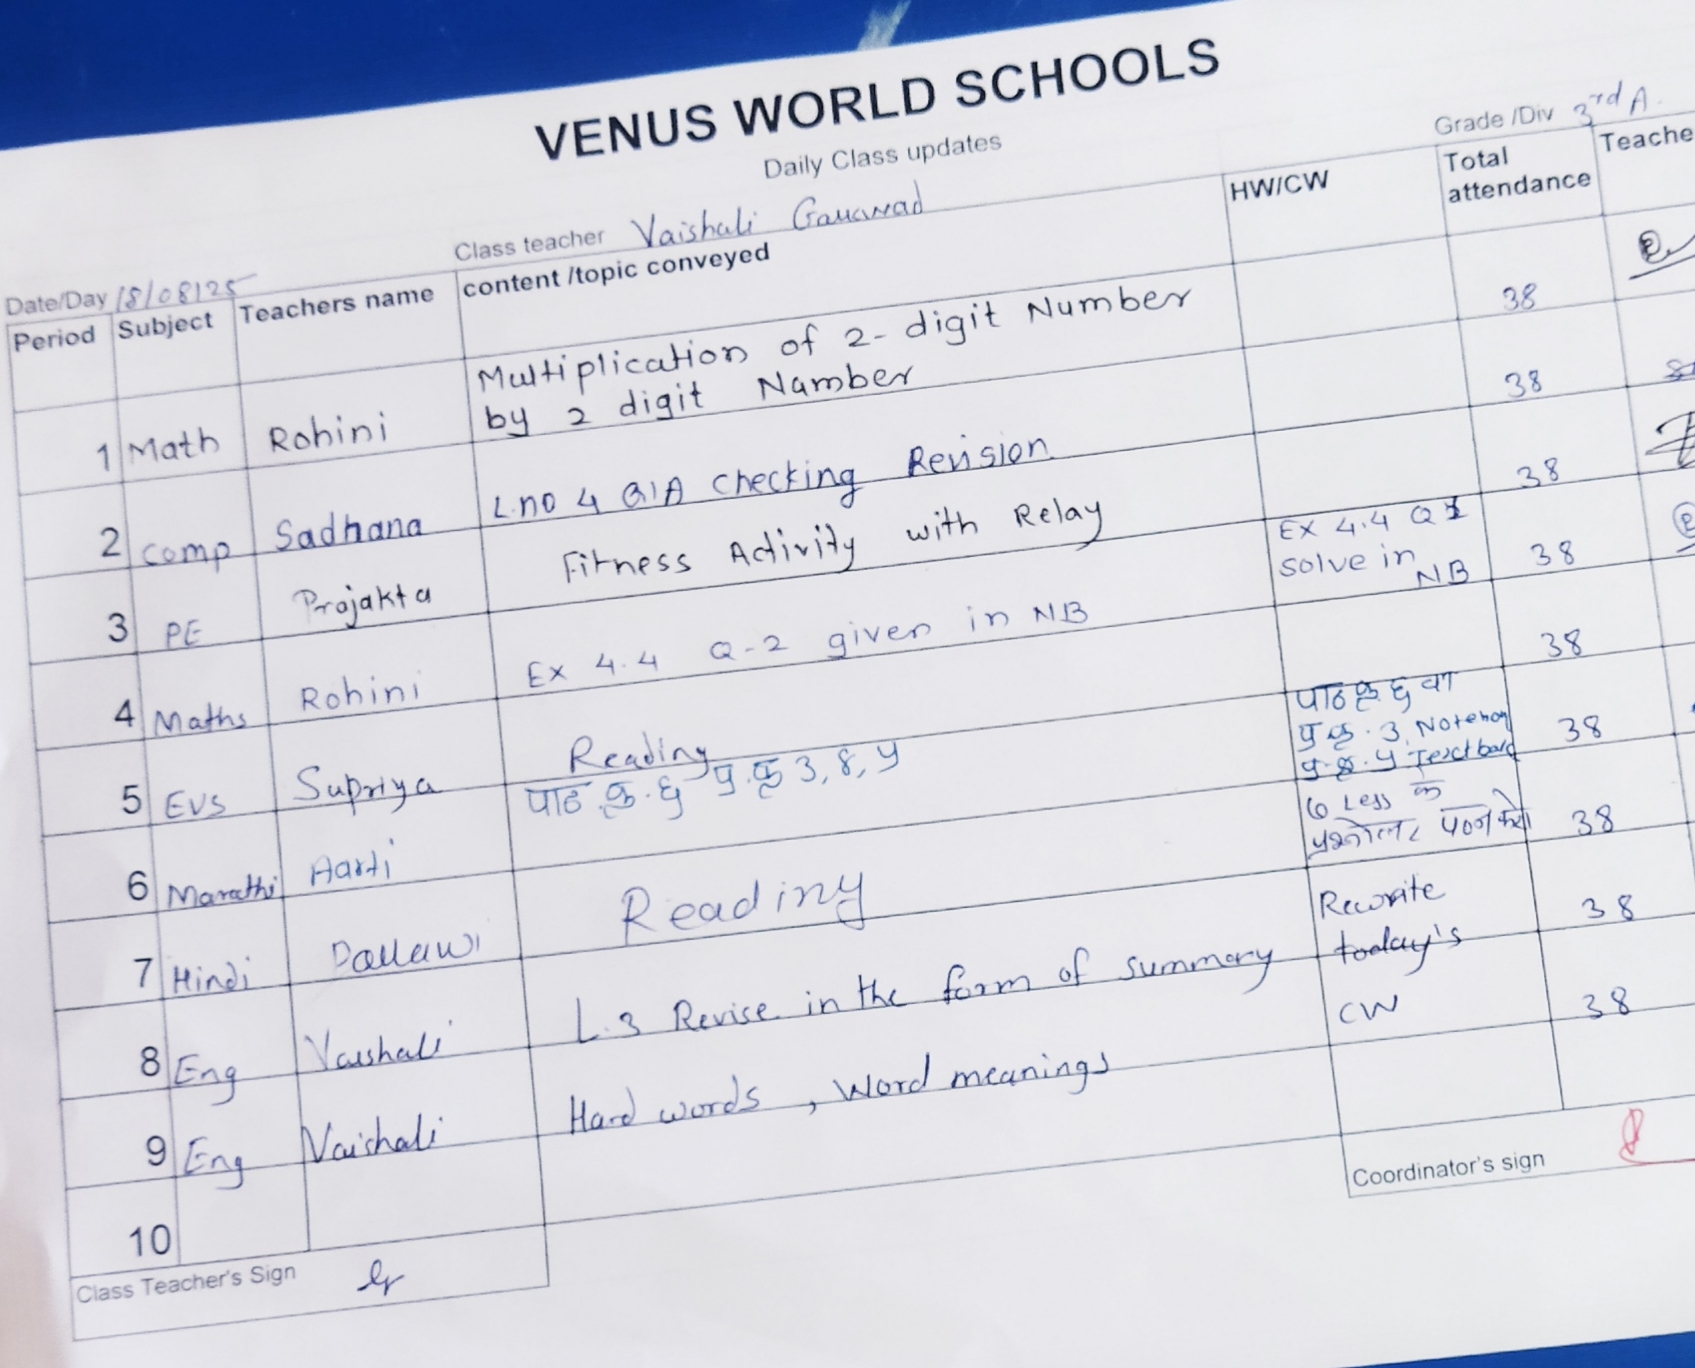 VENUS WORLD SCHOOLS
Daily Class updates
Grade /Div 3rd A.
Class teacher Vaishali Gauawad
Date/Day 18/08/25
Period Subject Teachers name content /topic conveyed HW/CW Total attendance Teache
1 Math Rohini Multiplication of 2-digit Number 38
by 2 digit Number
2 Comp Sadhana L.no 4 Q/A checking Revision 38
3 PE Prajakta Fitness Activity with Relay 38
4 Maths Rohini Ex 4.4 Q-2 given in NB EX 4.4 Q 38
solve in NB
5 EVS Supriya Reading 38
6 Marathi Aarti पाठ क्र.६ प्र.क्र 3, 8, 5 पाठ क्र ६ चा 38
प्र क्र. 3, Notebook
प्र.क्र. 5 Textbook
7 Hindi Pallawi Reading 6 Less के 38
8 Eng Vaishali L.3 Revise in the form of summary Rewrite 38
today's
9 Eng Vaishali Hard words, Word meanings CW 38
10
Class Teacher's Sign
Coordinator's sign